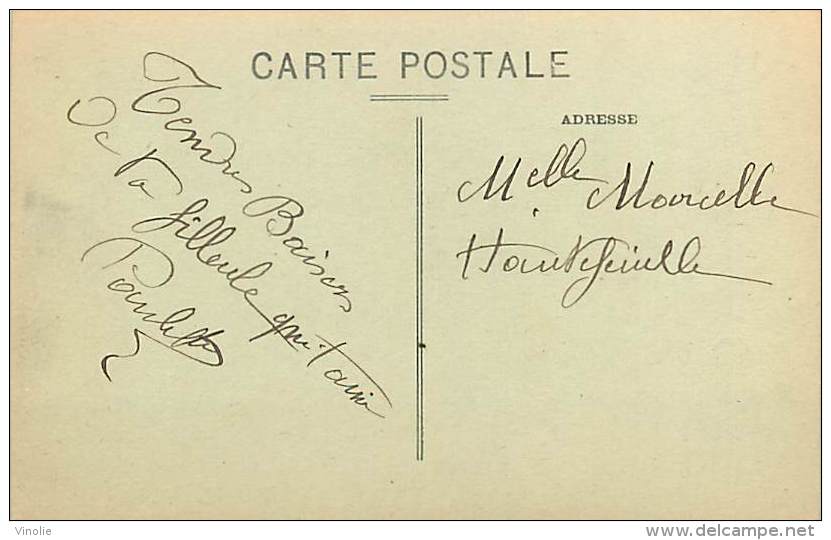 CARTE POSTALE
Tendres Baisers
De ta filleule qui t'aime
Paulette
ADRESSE
Melle Marcelle
Hautefeuille
Vinolie
delcampe.net